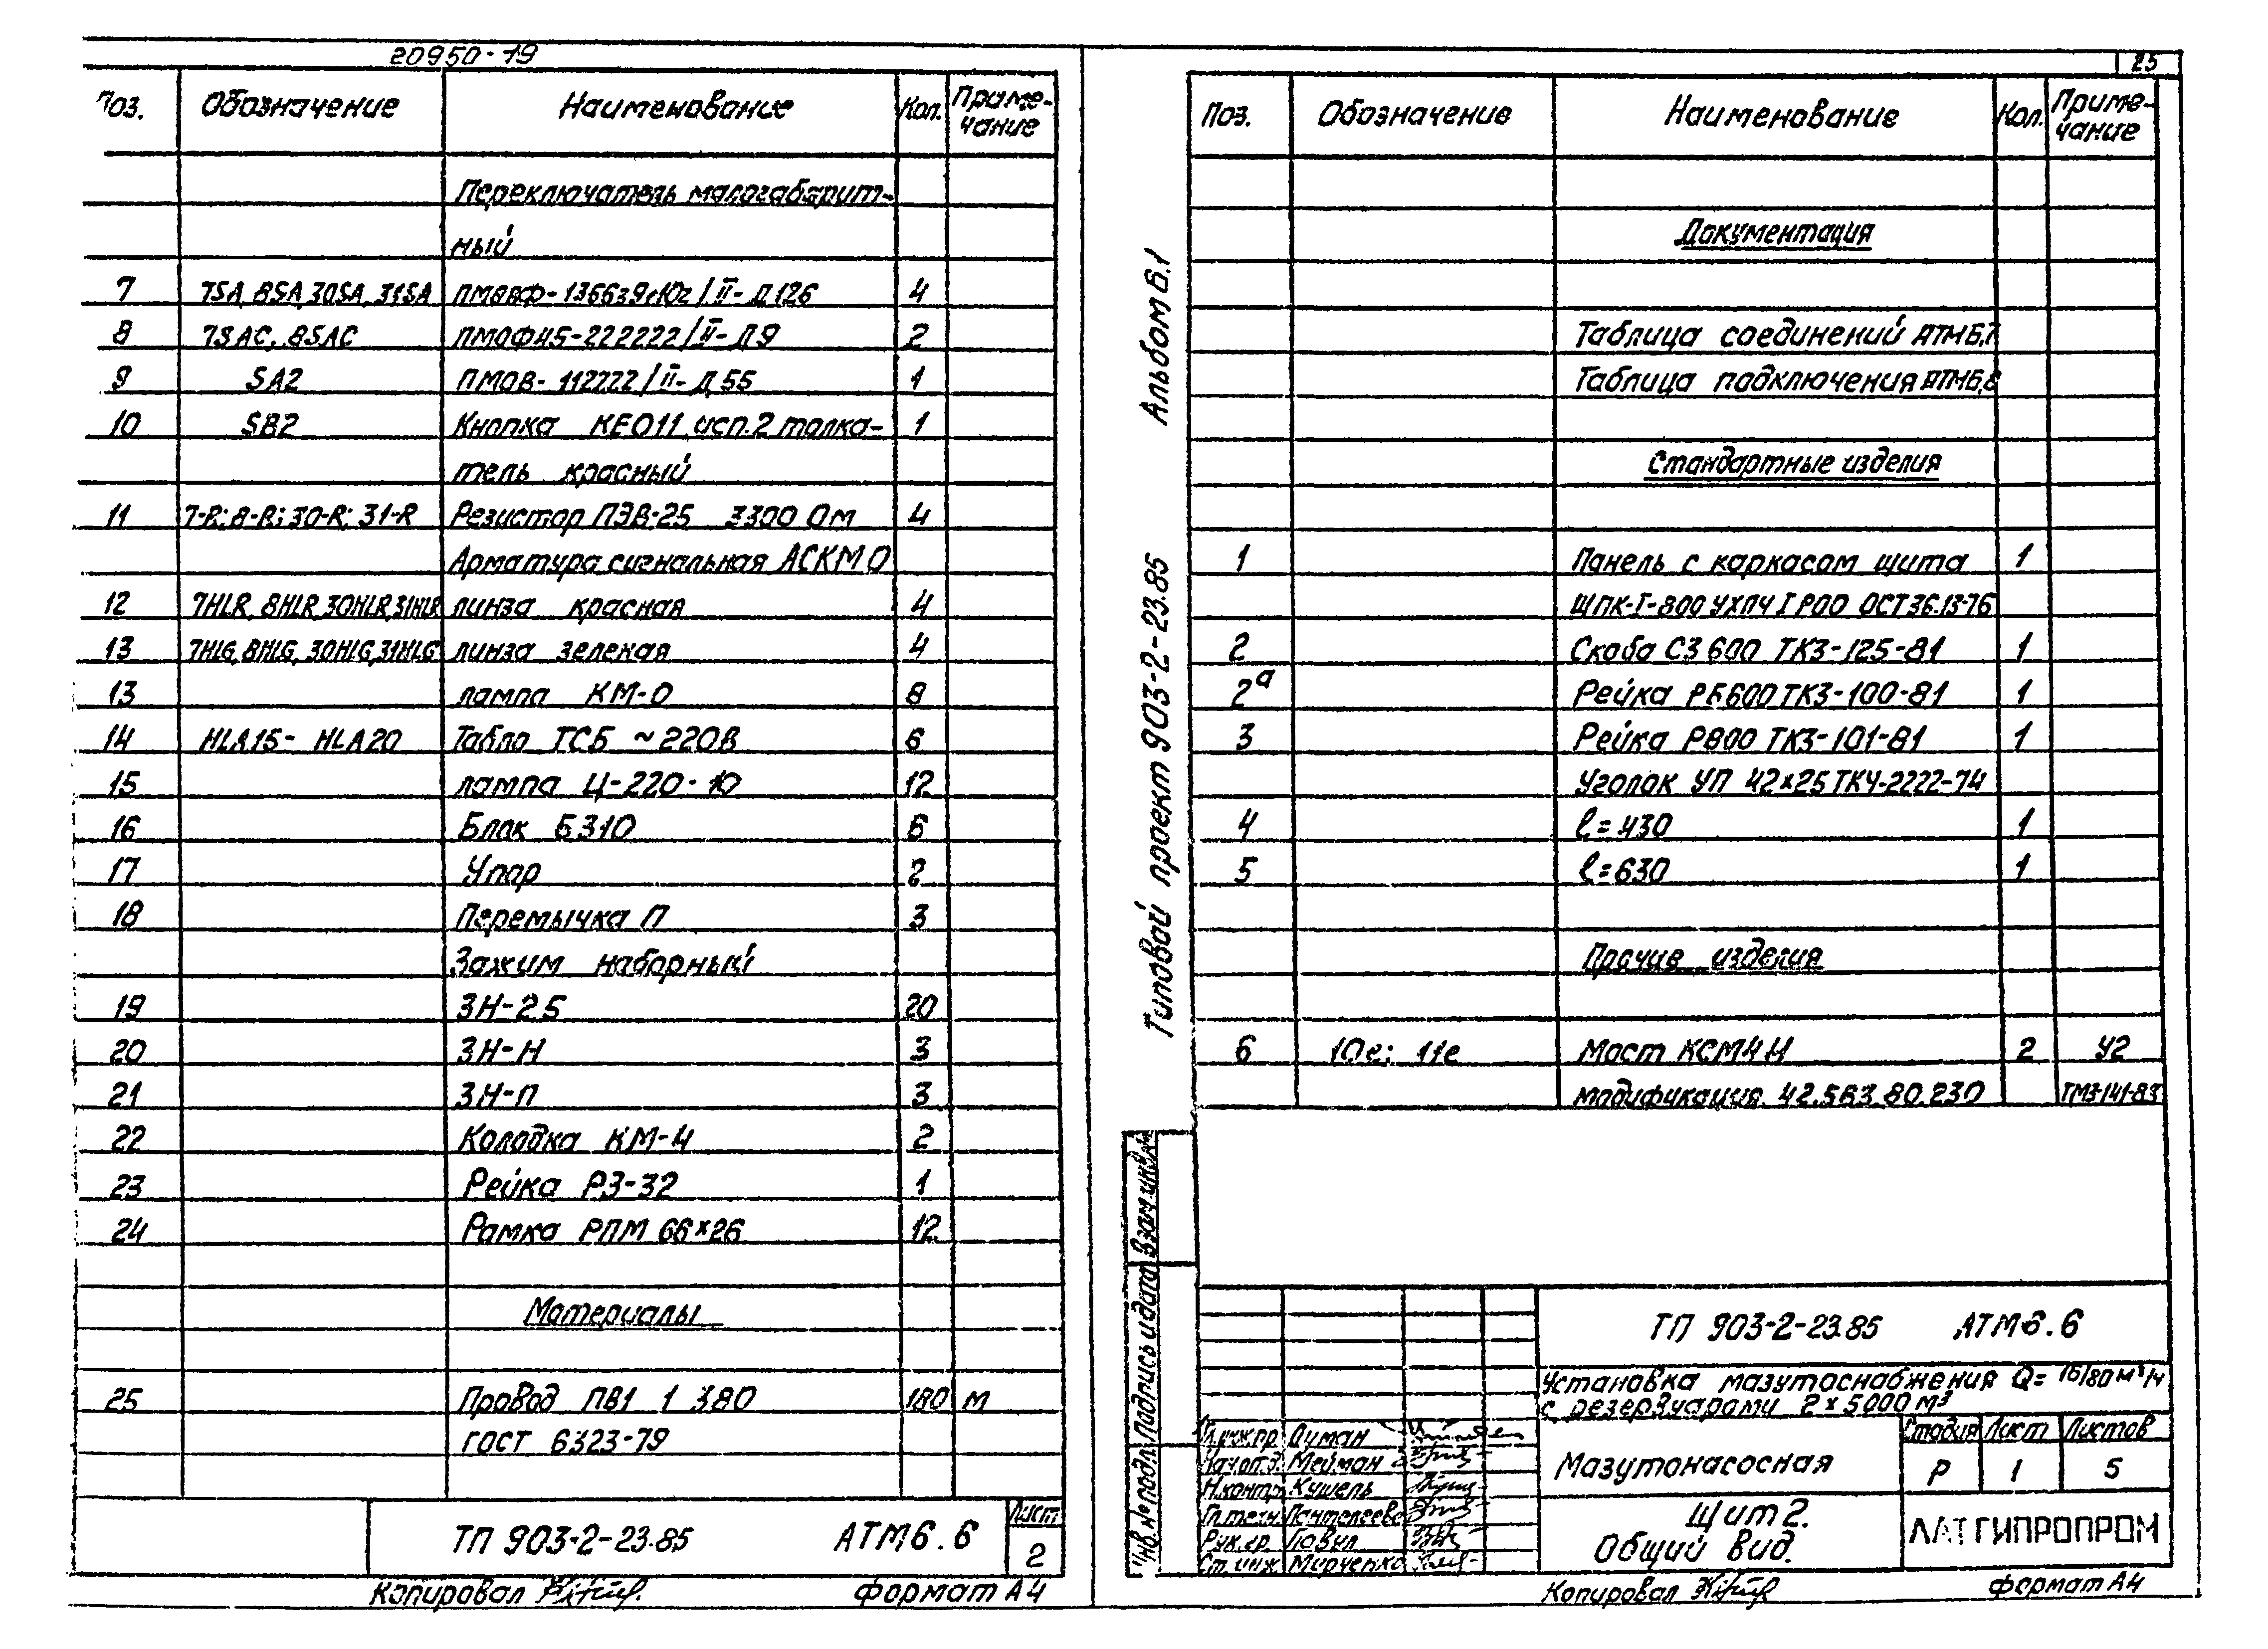 20950-19
Поз. Обозначение Наименование Кол. Приме-
чание
Переключатель малогабарит-
ный
7 7SA, 8SA, 30SA, 31SA /II-Д126 4
8 7SAC, 8SAC ПМОФ45-222222/II-Д9 2
9 SA2 ПМОВ-112222/II-Д55 1
10 SB2 Кнопка КЕ011 исп.2 толка- 1
тель красный
11 7-R; 8-R; 30-R; 31-R Резистор ПЭВ-25 3300 Ом 4
Арматура сигнальная АСКМ О
12 7HLR, 8HLR, 30HLR, 31HLR линза красная 4
13 7HLG, 8HLG, 30HLG, 31HLG линза зеленая 4
13 лампа КМ-0 8
14 HLA15- HLA20 Табло ТСБ ~220В 6
15 лампа Ц-220-10 12
16 Блок Б310 6
17 Упор 2
18 Перемычка П 3
Зажим наборный
19 ЗН-2.5 20
20 ЗН-Н 3
21 ЗН-П 3
22 Колодка КМ-4 2
23 Рейка РЗ-32 1
24 Рамка РПМ 66×26 12
Материалы
25 Провод ПВ1 1 380 180 м
ГОСТ 6323-79
ТП 903-2-23.85 АТМ6.6 Лист
2
Копировал формат А4
25
Альбом 6.1
Типовой проект 903-2-23.85
Поз. Обозначение Наименование Кол. Приме-
чание
Документация
Таблица соединений АТМ6.7
Таблица подключения АТМ6.8
Стандартные изделия
1 Панель с каркасом щита 1
ЩПК-I-800 УХЛ4 IР00 ОСТ 36.13-76
2 Скоба С3 600 ТК3-125-81 1
2а Рейка РБ600 ТК3-100-81 1
3 Рейка Р800 ТК3-101-81 1
Уголок УП 42×25 ТК4-2222-74
4 l=430 1
5 l=630 1
Прочие изделия
6 10е; 11е Мост КСМ4И 2 У2
модификация 42.563.80.230 ТМ3-141-83
Взам.инв.№
Подпись и дата
Инв.№ подл.
ТП 903-2-23.85 АТМ6.6
Установка мазутоснабжения Q= м³/ч
с резервуарами 2×5000 м³
Гл.инж.пр. Думан
Нач.от.Э. Мейман
Н.контр. Кушель
Гл.техн. Пантелеева
Рук.гр.
Ст.инж. Марченко
Мазутонасосная
Стадия Лист Листов
Р 1 5
Щит 2.
Общий вид.
ЛАТГИПРОПРОМ
Копировал формат А4